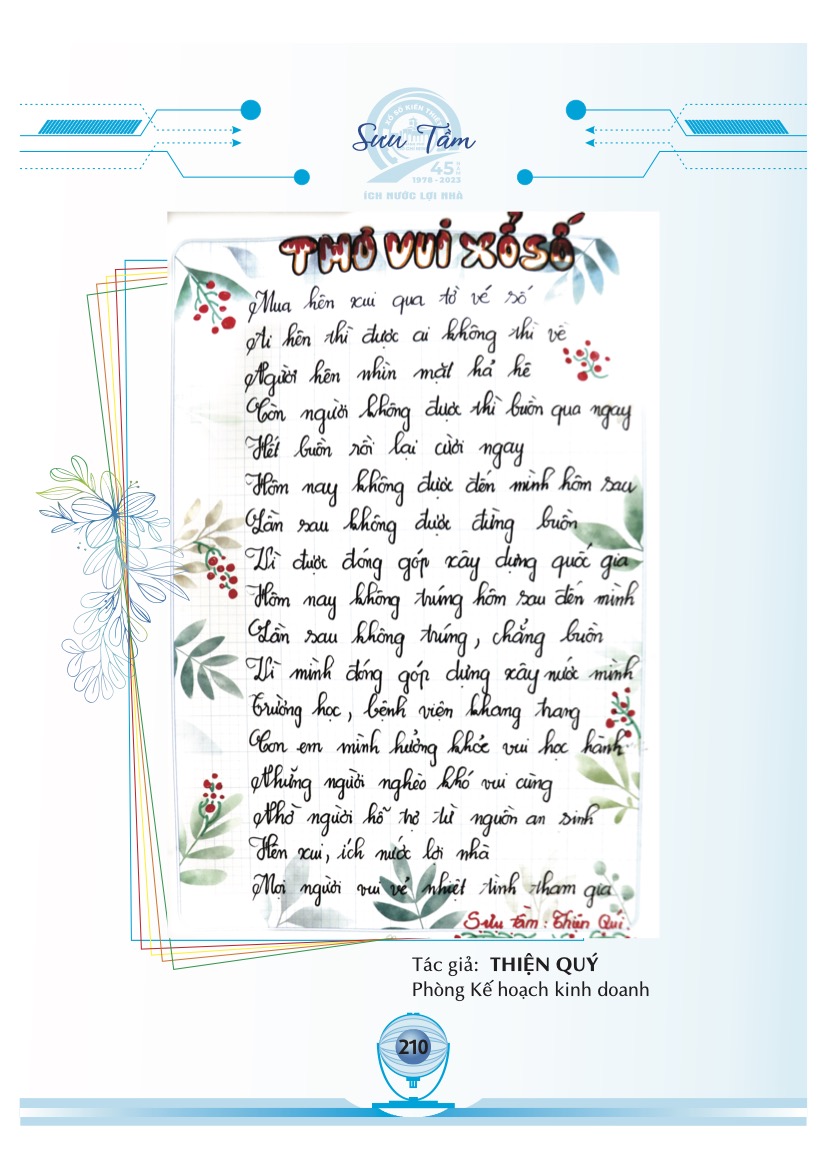 XỔ SỐ KIẾN THIẾT
Sưu Tầm
45 NĂM
1978 - 2023
ÍCH NƯỚC LỢI NHÀ
THƠ VUI XỔ SỐ
Mua hên xui qua tờ vé số
Ai hên thì được ai không thì về
Người hên nhìn mặt hả hê
Còn người không được thì buồn qua ngay
Hết buồn rồi lại cười ngay
Hôm nay không được đến mình hôm sau
Lần sau không được đừng buồn
Vì được đóng góp xây dựng quốc gia
Hôm nay không trúng hôm sau đến mình
Lần sau không trúng, chẳng buồn
Vì mình đóng góp dựng xây nước mình
Trường học, bệnh viện khang trang
Con em mình hưởng khỏe vui học hành
Những người nghèo khó vui cùng
Nhờ người hỗ trợ từ nguồn an sinh
Hên xui, ích nước lợi nhà
Mọi người vui vẻ nhiệt tình tham gia
Sưu tầm: Thiện Quí
Tác giả: THIỆN QUÝ
Phòng Kế hoạch kinh doanh
210